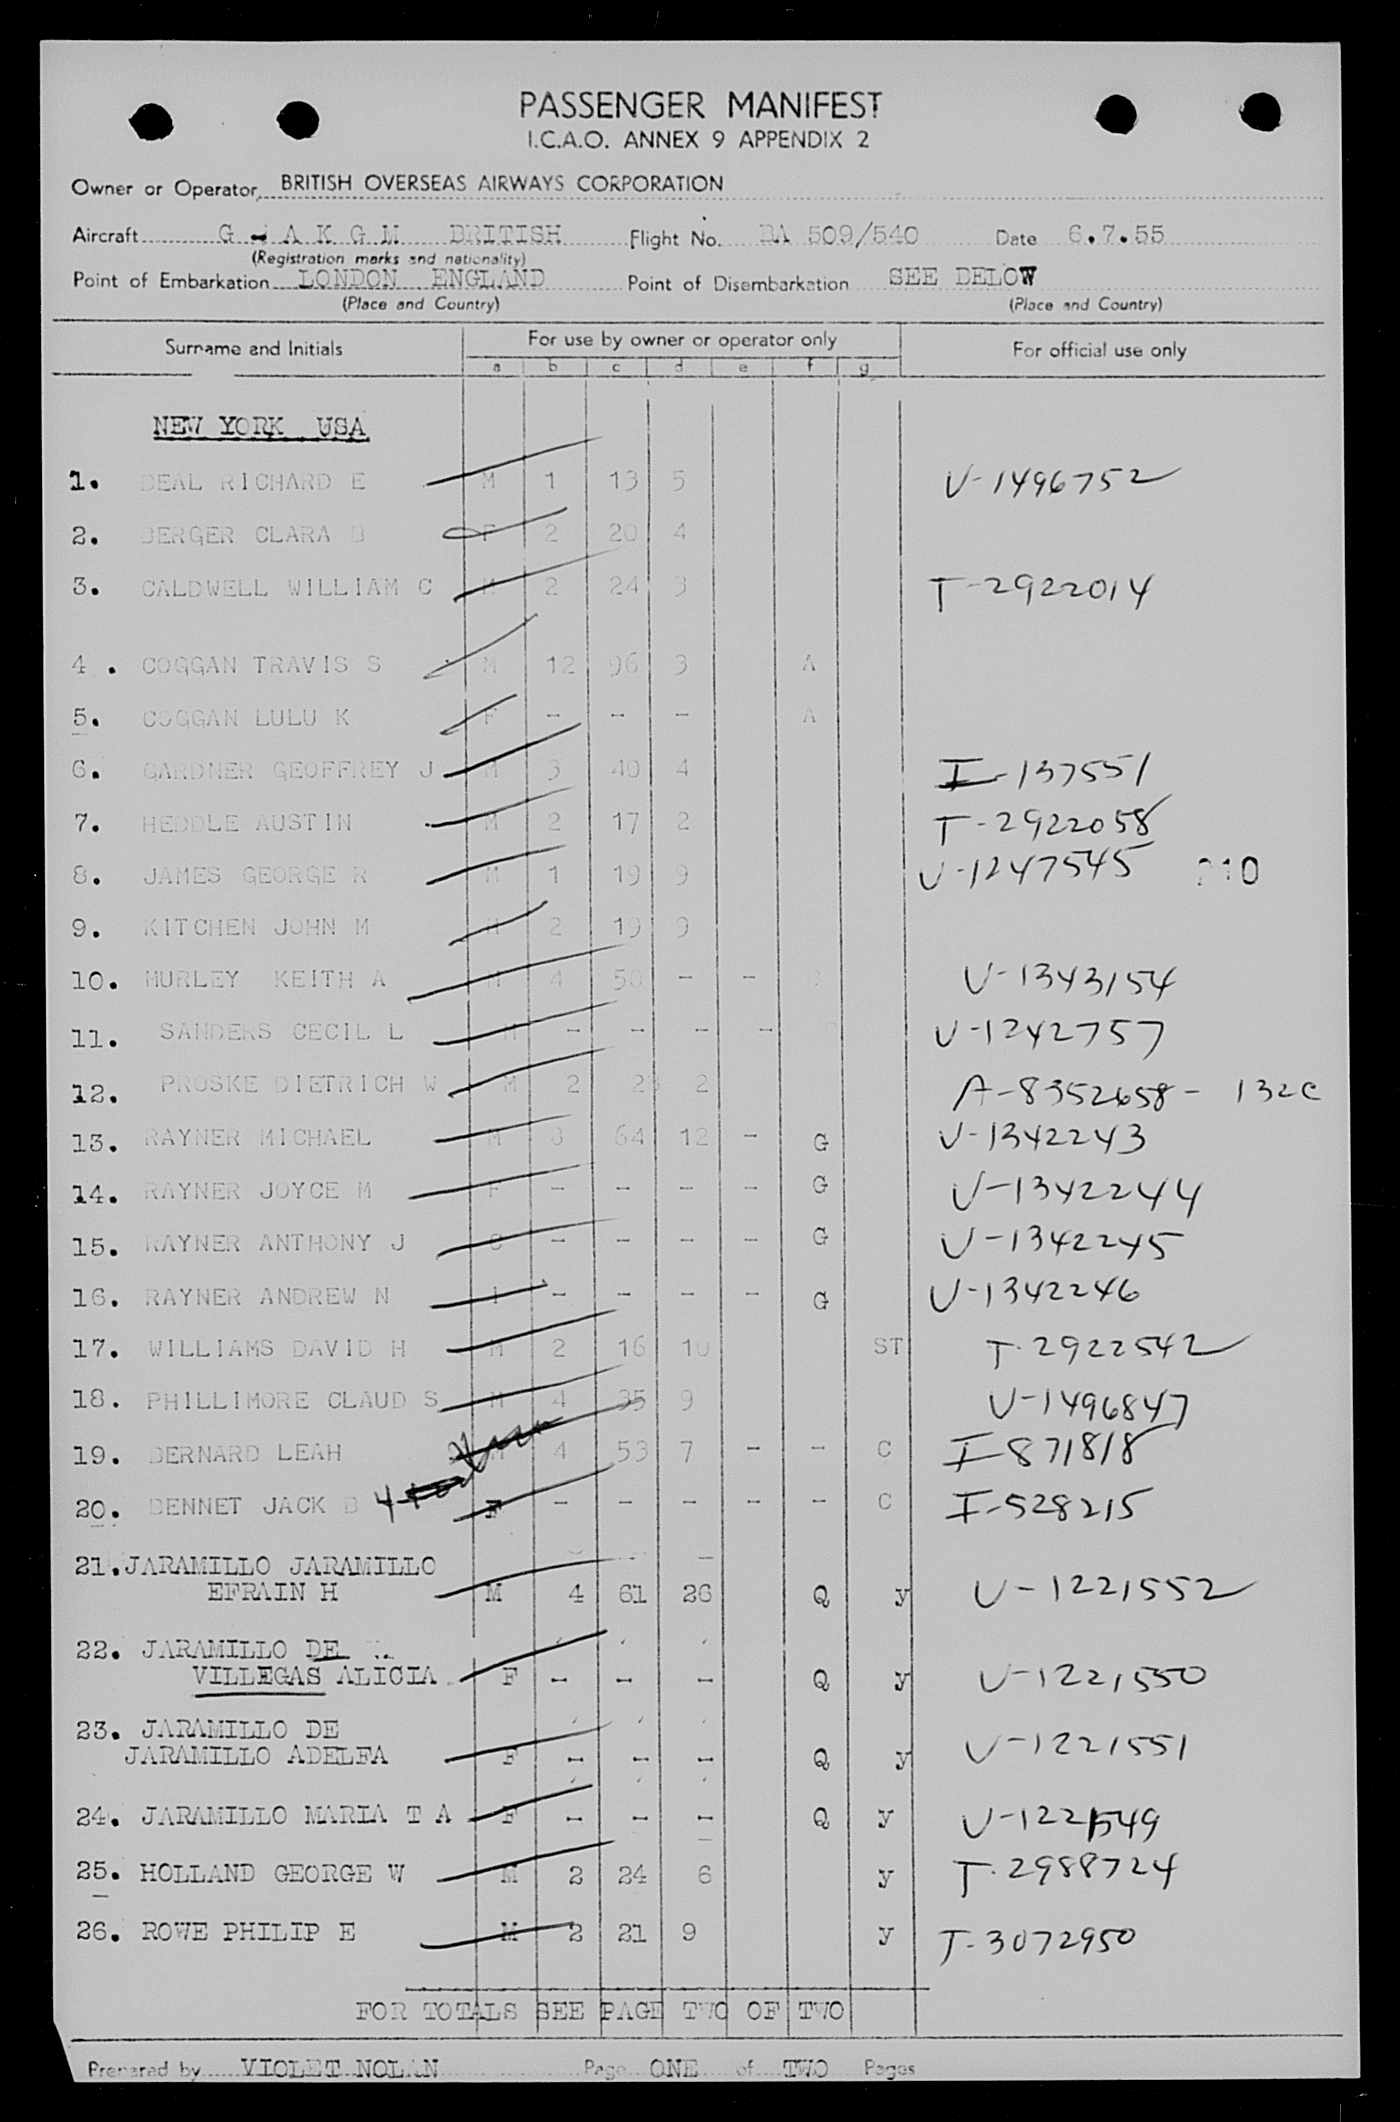 PASSENGER MANIFEST
I.C.A.O. ANNEX 9 APPENDIX 2
Owner or Operator BRITISH OVERSEAS AIRWAYS CORPORATION
Aircraft G - A K G M BRITISH Flight No. BA 509/540 Date 6.7.55
(Registration marks and nationality)
Point of Embarkation LONDON ENGLAND Point of Disembarkation SEE BELOW
(Place and Country) (Place and Country)
Surname and Initials For use by owner or operator only For official use only
a b c d e f g
NEW YORK USA
1. DEAL RICHARD E M 1 13 5 V-1496752
2. BERGER CLARA B F 2 20 4
3. CALDWELL WILLIAM C M 2 24 3 T-2922014
4. COGGAN TRAVIS S M 12 96 3 A
5. COGGAN LULU K F - - - A
6. GARDNER GEOFFREY J M 3 40 4 I-137551
7. HEDDLE AUSTIN M 2 17 2 T-2922058
8. JAMES GEORGE R M 1 19 9 V-1247545
9. KITCHEN JOHN M M 2 19 9
10. MURLEY KEITH A M 4 50 - - V-1343154
11. SANDERS CECIL L M - - - - V-1242757
12. PROSKE DIETRICH W M 2 2 V-8352658 - 132C
13. RAYNER MICHAEL M 64 12 - G V-1342243
14. RAYNER JOYCE M F - - - - G V-1342244
15. RAYNER ANTHONY J C - - - - G V-1342245
16. RAYNER ANDREW N I - - - - G V-1342246
17. WILLIAMS DAVID H M 2 16 10 ST T-2922542
18. PHILLIMORE CLAUD S M 4 35 9 V-1496847
19. BERNARD LEAH 4 53 7 - - C I-871818
20. BENNET JACK B F - - - - - C I-528215
21. JARAMILLO JARAMILLO
EFRAIN H M 4 61 26 Q y V-1221552
22. JARAMILLO DE
VILLEGAS ALICIA F - - - Q y V-1221550
23. JARAMILLO DE
JARAMILLO ADELFA F - - - Q y V-1221551
24. JARAMILLO MARIA T A F - - - Q y V-1221549
25. HOLLAND GEORGE W M 2 24 6 y T-2988724
26. ROWE PHILIP E M 2 21 9 y T-3072950
FOR TOTALS SEE PAGE TWO OF TWO
Prepared by VIOLET NOLAN Page ONE of TWO Pages